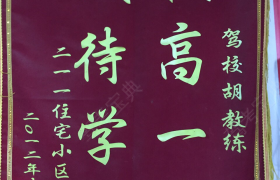 驾校胡教练
高一
待学
二一一住宅小区
二〇一二年